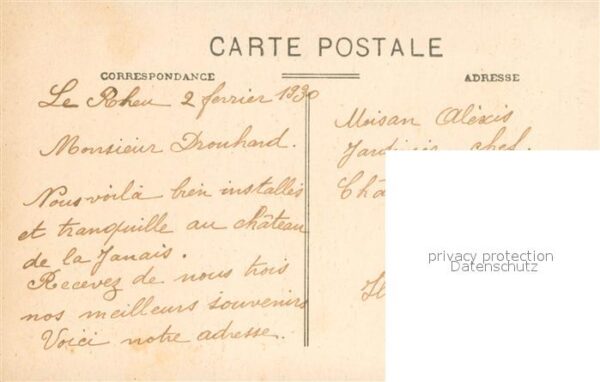 CARTE POSTALE
CORRESPONDANCE
ADRESSE
Le Rheu 2 fevrier 1930
Monsieur Drouhard.
Nous voilà bien installés
et tranquille au château
de la Janais.
Recevez de nous trois
nos meilleurs souvenirs
Voici notre adresse.
Moisan Aléxis
Jardinier chef
privacy protection
Datenschutz